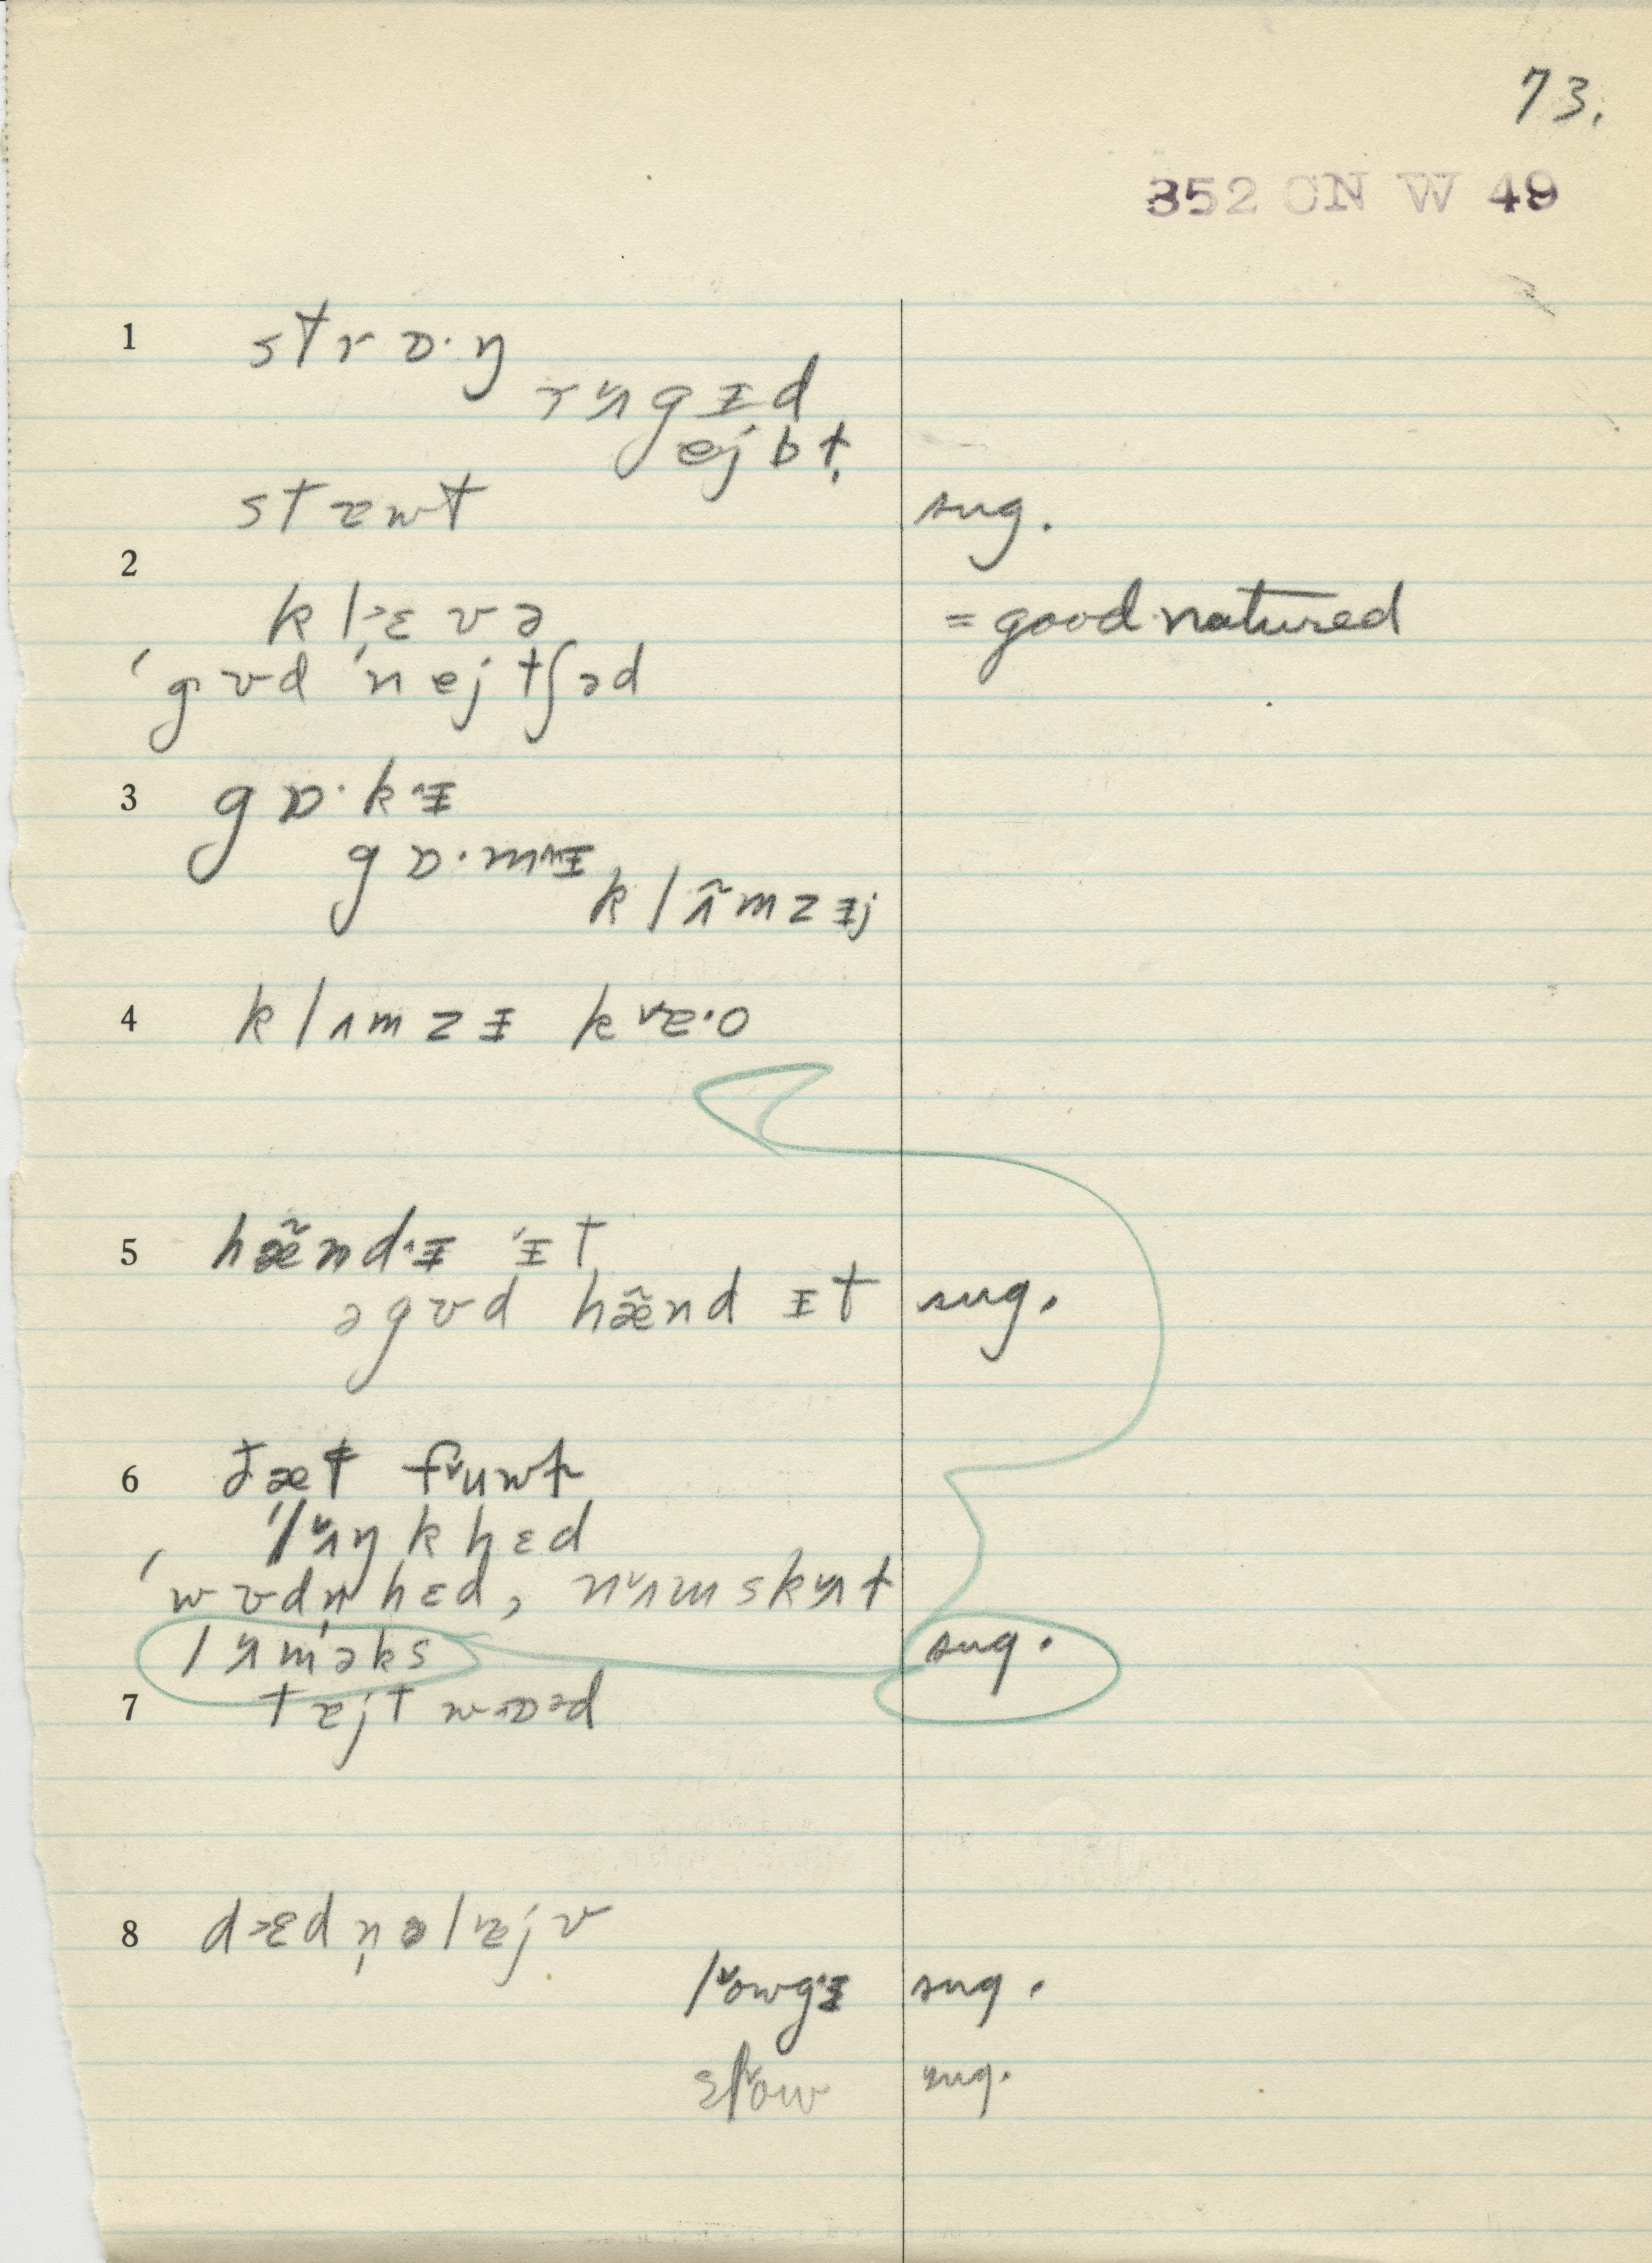 73.
352 CN W 49
1 strɒ·ŋ
rʌ̌gɪd
ejbɫ̩
stɐwt sug.
2
klɛ˃və = good natured
ˈgʊd ˈnejtʃəd
3 gɒ·kɪ
gɒ·mɪ
klʌ̃mzɪj
4 klʌmzɪ kɐ·o
5 hæ̃ndɪ ˈɪt
əgʊd hæ̃nd ɪt sug.
6 ðæt fuwɫ
ˈlʌŋkhɛd
ˈwʊdn̩hɛd, nʌmskʌɫ
lʌməks sug.
7 tɐjtwɒəd
8 dɛdn̩əlɐjv
lowgɪ sug.
slow sug.